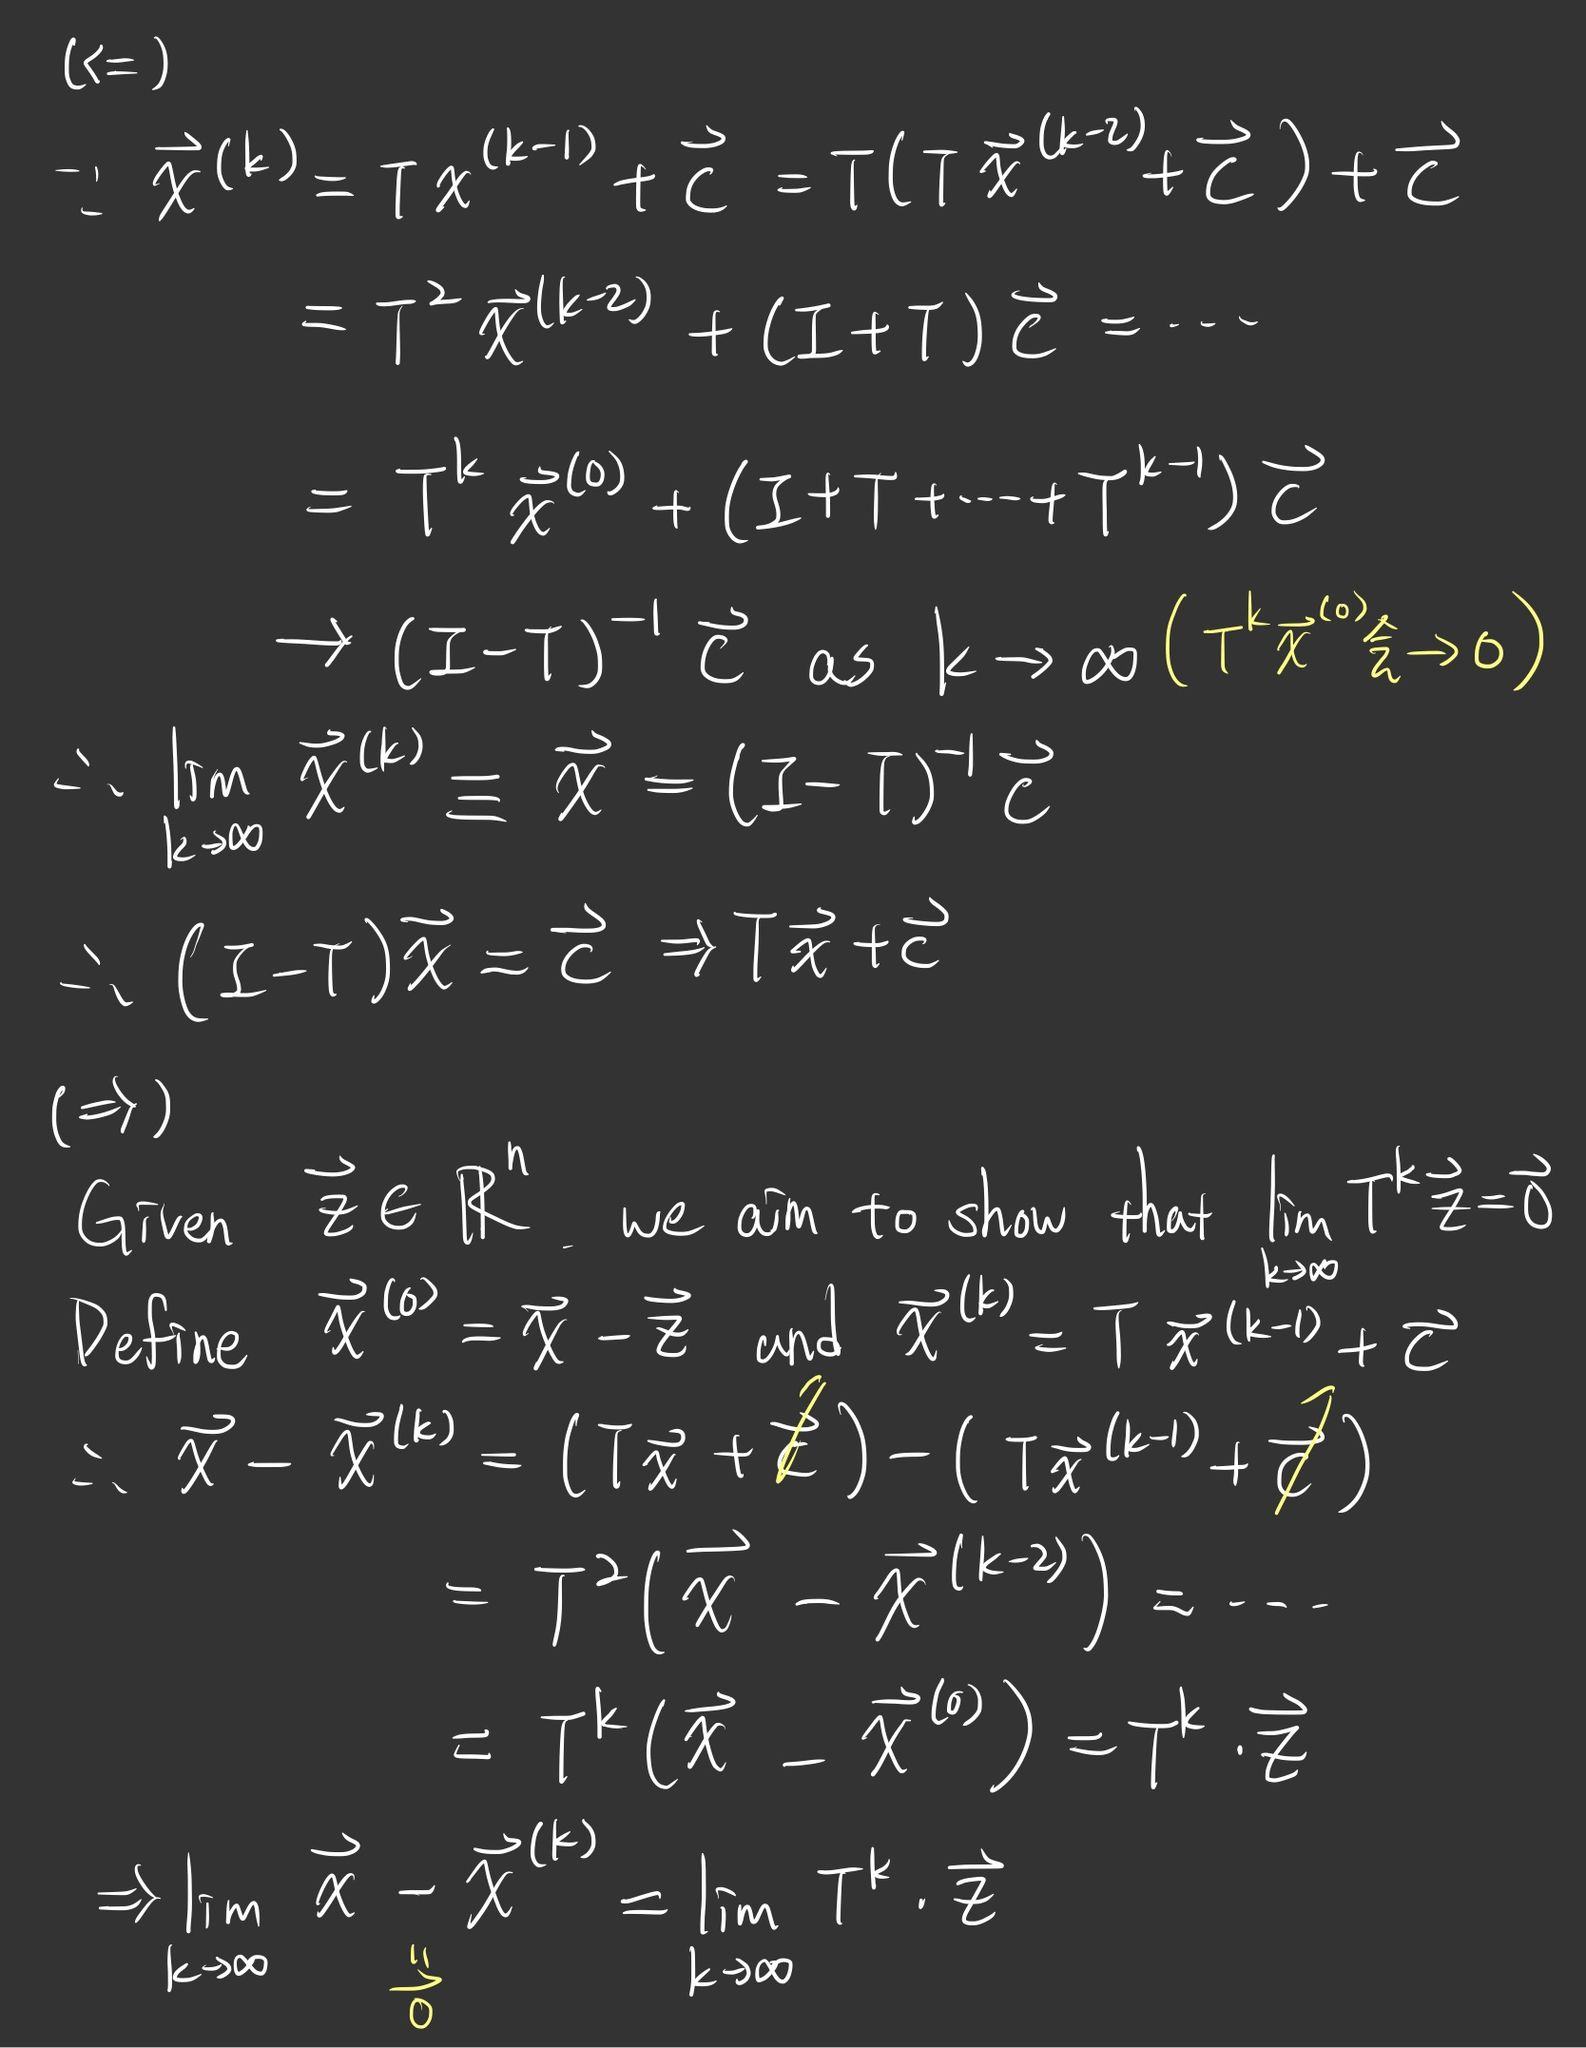 (<=)
∵ x⃗^(k) = T x^(k-1) + c⃗ = T(T x⃗^(k-2) + c⃗) + c⃗
= T² x⃗^(k-2) + (I+T) c⃗ = ⋯
= T^k x⃗^(0) + (I+T+⋯+T^(k-1)) c⃗
→ (I-T)^-1 c⃗ as k→∞ (T^k x⃗^(0) → 0)
∴ lim_{k→∞} x⃗^(k) ≡ x⃗ = (I-T)^-1 c⃗
∴ (I-T)x⃗ = c⃗ ⇒ T x⃗ + c⃗
(⇒)
Given z⃗ ∈ ℝ^n we aim to show that lim_{k→∞} T^k z⃗ = 0⃗
Define x⃗^(0) = x⃗ - z⃗ and x⃗^(k) = T x⃗^(k-1) + c⃗
∴ x⃗ - x⃗^(k) = (T x⃗ + c⃗) - (T x⃗^(k-1) + c⃗)
= T² (x⃗ - x⃗^(k-2)) = ⋯
= T^k (x⃗ - x⃗^(0)) = T^k · z⃗
⇒ lim_{k→∞} x⃗ - x⃗^(k) = lim_{k→∞} T^k · z⃗
= 0⃗